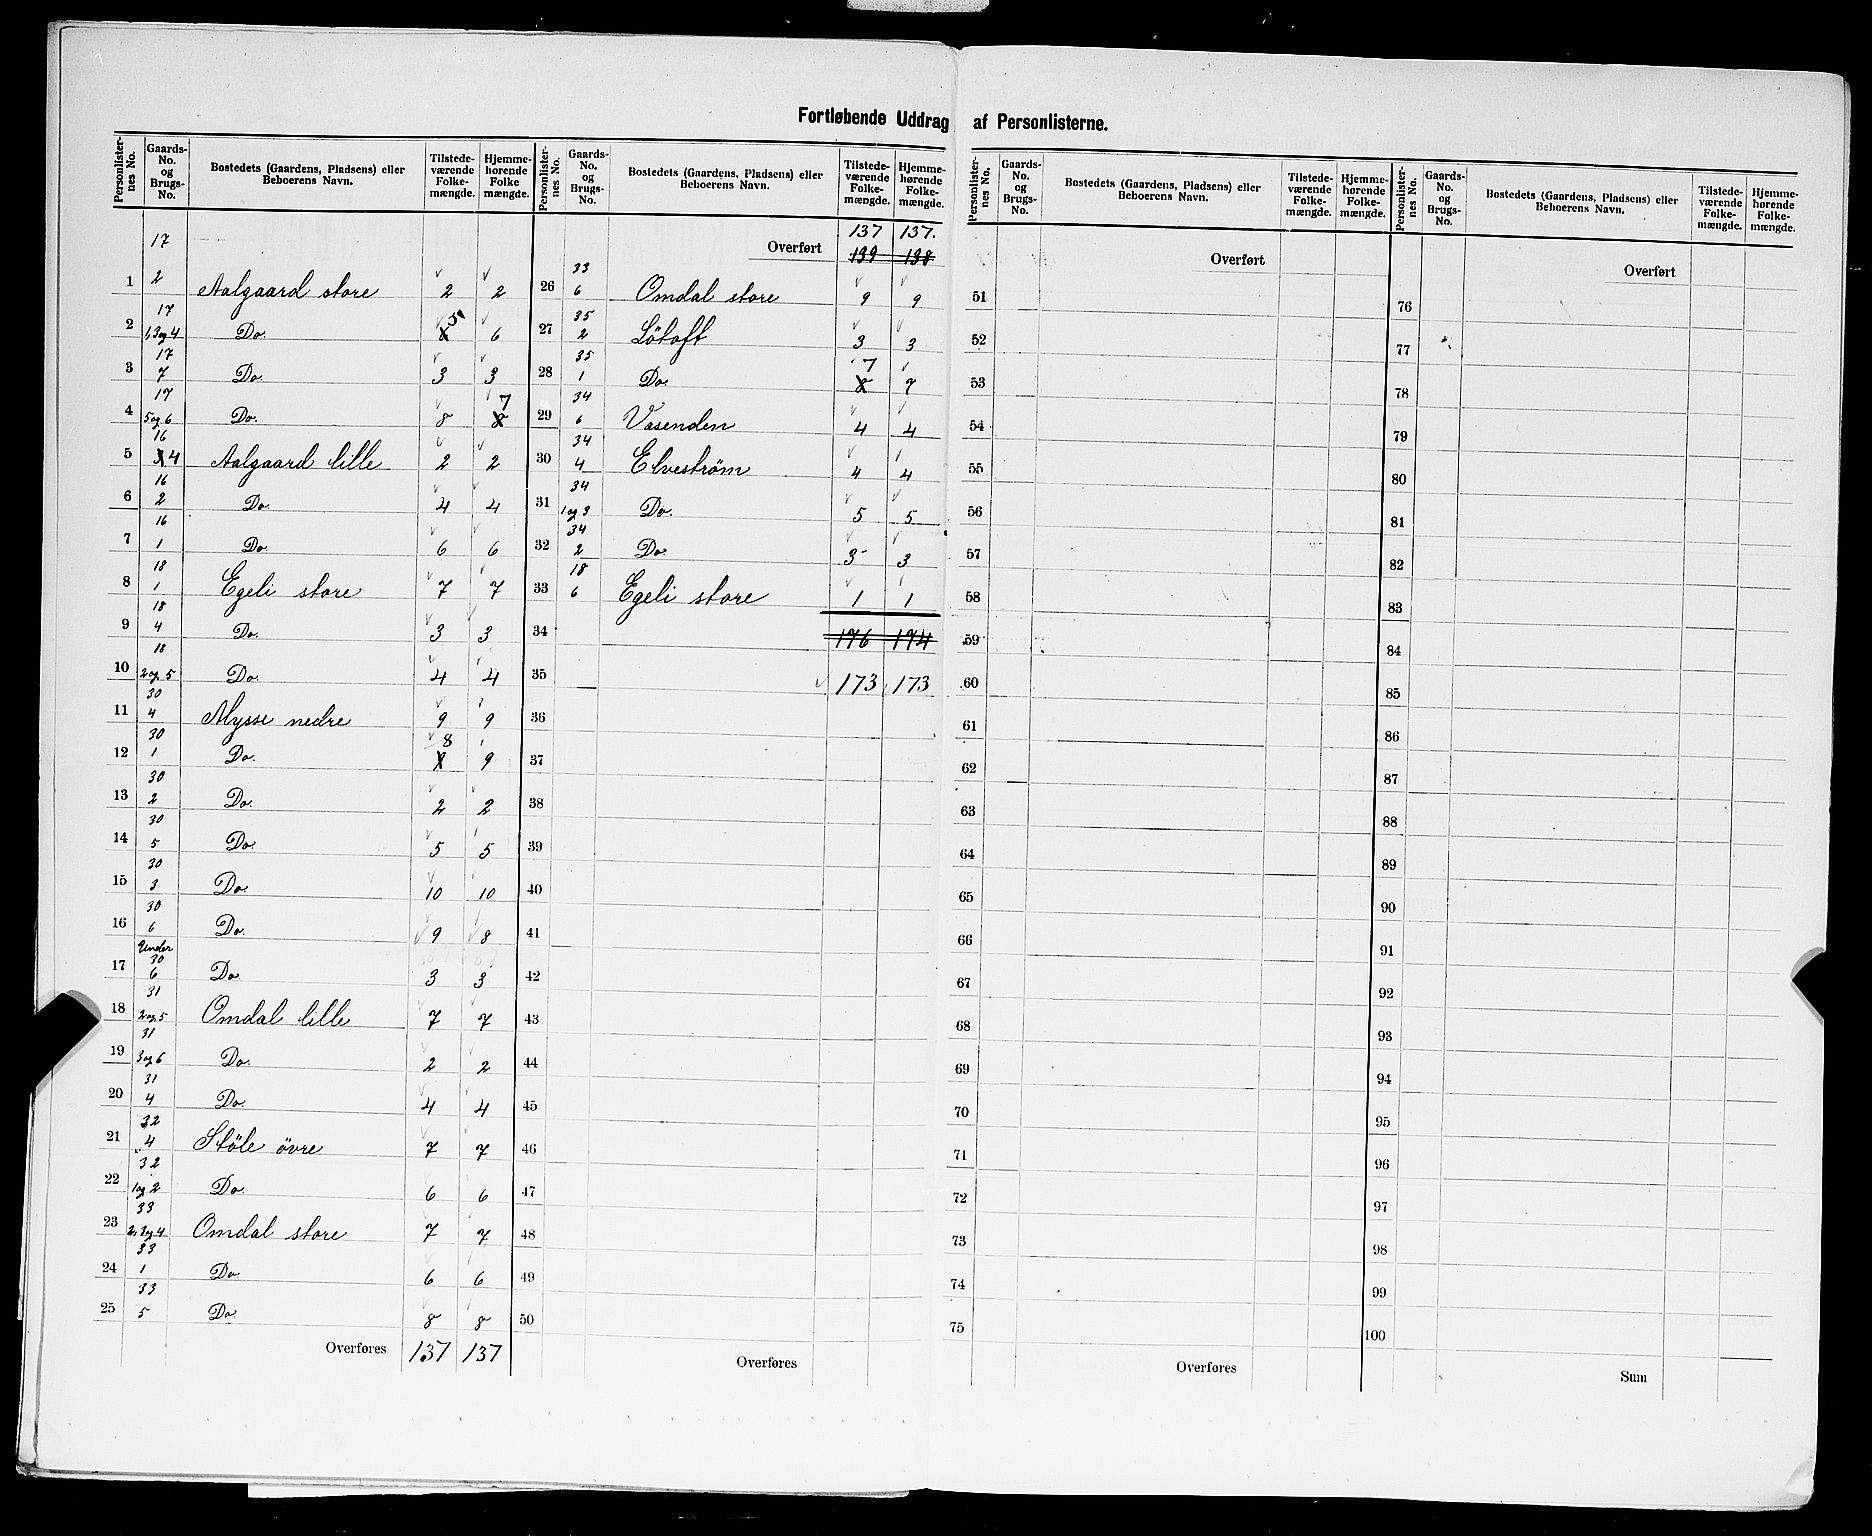 Fortløbende Uddrag af Personlisterne.
Personlister-nes No. | Gaards-No. og Brugs-No. | Bostedets (Gaardens, Pladsens) eller Beboerens Navn. | Tilstede-værende Folke-mængde. | Hjemme-hørende Folke mængde.
1 | 17 2 | Aalgaard store | 2 | 2
2 | 17 1,3 og 4 | Do. | 5 | 6
3 | 17 7 | Do. | 3 | 3
4 | 17 5 og 6 | Do. | 8 | 7
5 | 16 4 | Aalgaard lille | 2 | 2
6 | 16 2 | Do. | 4 | 4
7 | 16 1 | Do. | 6 | 6
8 | 18 1 | Egeli store | 7 | 7
9 | 18 4 | Do. | 3 | 3
10 | 18 2 og 5 | Do. | 4 | 4
11 | 30 4 | Mysse nedre | 9 | 9
12 | 30 1 | Do. | 8 | 9
13 | 30 2 | Do. | 2 | 2
14 | 30 5 | Do. | 5 | 5
15 | 30 3 | Do. | 10 | 10
16 | 30 6 | Do. | 9 | 8
17 | Under 30 6 | Do. | 3 | 3
18 | 31 2 og 5 | Omdal lille | 7 | 7
19 | 31 3 og 6 | Do. | 2 | 2
20 | 31 4 | Do. | 4 | 4
21 | 32 4 | Støle øvre | 7 | 7
22 | 32 1 og 2 | Do. | 6 | 6
23 | 33 2, 3 og 4 | Omdal store | 7 | 7
24 | 33 1 | Do. | 6 | 6
25 | 33 5 | Do. | 8 | 8
Overføres | 137 | 137
Personlister-nes No. | Gaards-No. og Brugs-No. | Bostedets (Gaardens, Pladsens) eller Beboerens Navn. | Tilstede-værende Folke-mængde. | Hjemme-hørende Folke-mængde.
137 | 137.
Overført | 139 | 138
26 | 33 6 | Omdal store | 9 | 9
27 | 35 2 | Løtoft | 3 | 3
28 | 35 1 | Do. | 7 | 7
29 | 34 6 | Vasenden | 4 | 4
30 | 34 4 | Elvestrøm | 4 | 4
31 | 34 1 og 3 | Do. | 5 | 5
32 | 34 2 | Do. | 3 | 3
33 | 18 6 | Egeli store | 1 | 1
34 | 176 | 174
35 | 173 | 173
36
37
38
39
40
41
42
43
44
45
46
47
48
49
50
Overføres
Personlister-nes No. | Gaards-No. og Brugs-No. | Bostedets (Gaardens, Pladsens) eller Beboerens Navn. | Tilstede-værende Folke-mængde. | Hjemme-hørende Folke-mængde.
Overført
51
52
53
54
55
56
57
58
59
60
61
62
63
64
65
66
67
68
69
70
71
72
73
74
75
Overføres
Personlister-nes No. | Gaards-No. og Brugs-No. | Bostedets (Gaardens, Pladsens) eller Beboerens Navn. | Tilstede-værende Folke-mængde. | Hjemme-hørende Folke-mængde.
Overført
76
77
78
79
80
81
82
83
84
85
86
87
88
89
90
91
92
93
94
95
96
97
98
99
100
Sum